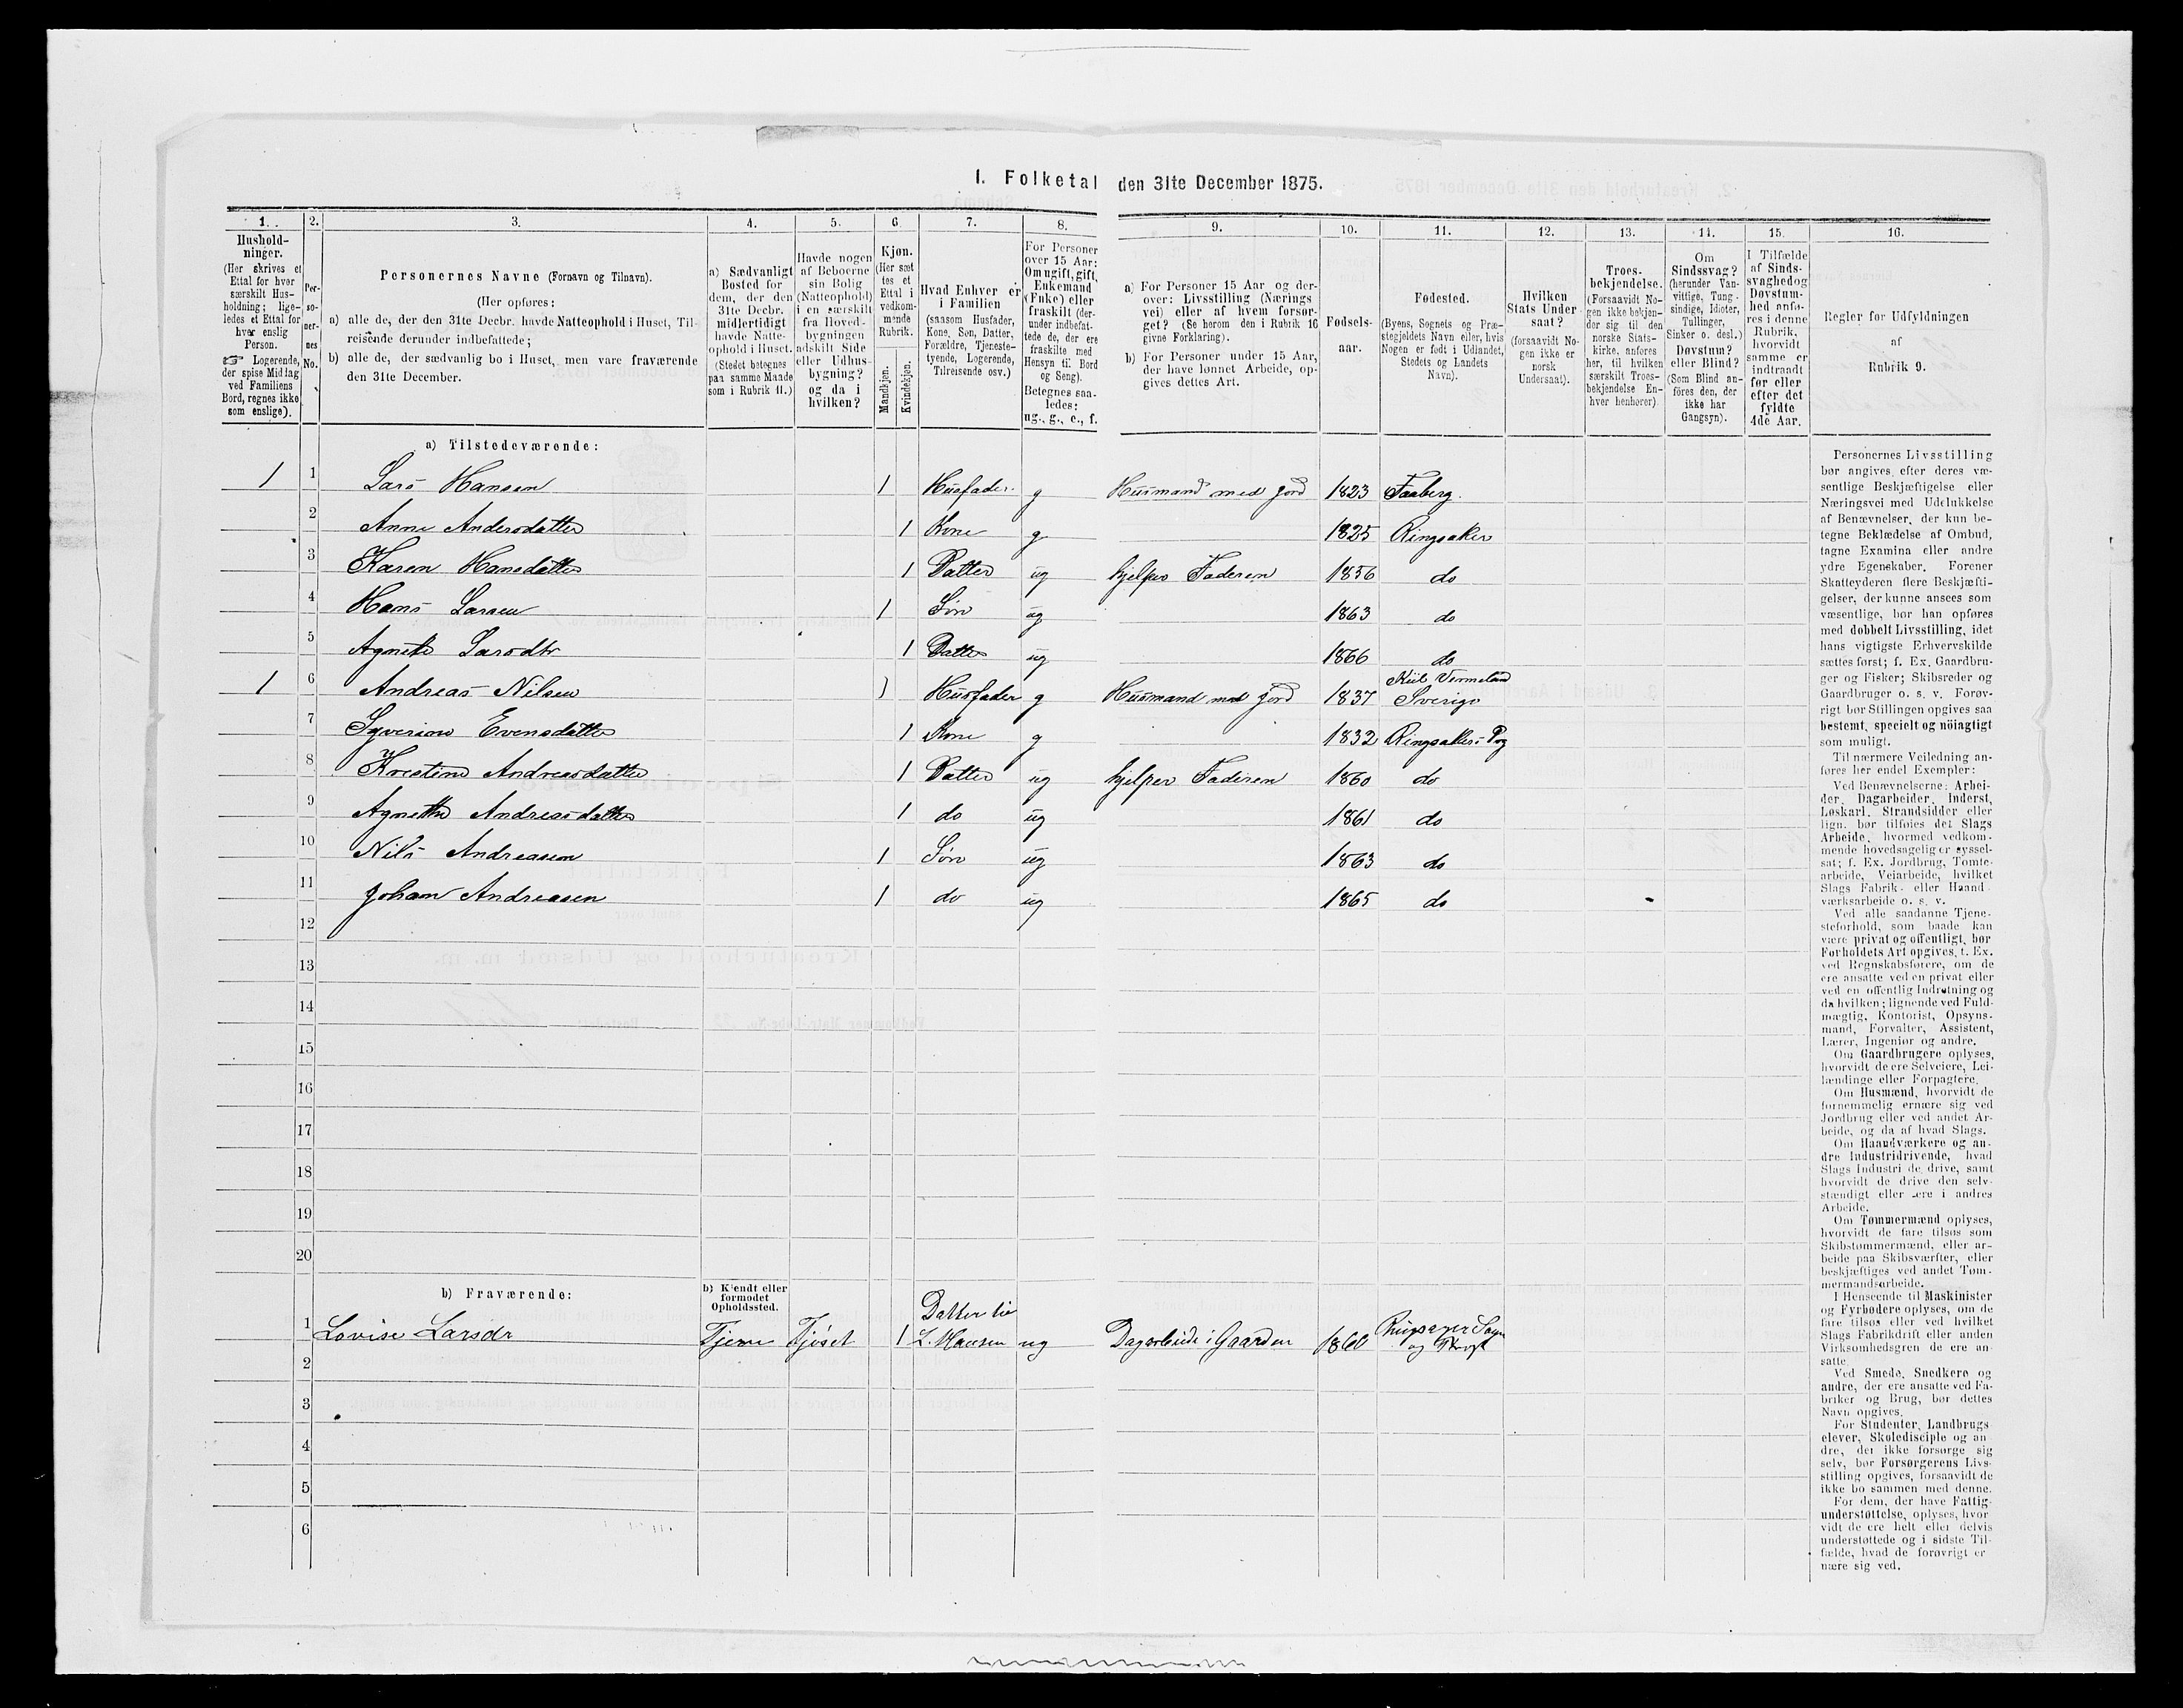 I. Folketal den 31te December 1875.
1. 2. 3. 4. 5. 6. 7. 8. 9. 10. 11. 12. 13. 14. 15. 16.
Hushold-
ninger.
(Her skrives et
Ettal for hver
særskilt Hus-
holdning; lige-
ledes et Ettal for
hver enslig
Person.
☞ Logerende,
der spise Middag
ved Familiens
Bord, regnes ikke
som enslige).
Per-
so-
ner-
nes
No.
Personernes Navne (Fornavn og Tilnavn).
(Her opføres:
a) alle de, der den 31te Decbr. havde Natteophold i Huset, Til-
reisende derunder indbefattede;
b) alle de, der sædvanlig bo i Huset, men vare fraværende
den 31te December.
a) Sædvanligt
Bosted for
dem, der den
31te Decbr.
midlertidigt
havde Natte-
ophold i Huset.
(Stedet betegnes
paa samme Maade
som i Rubrik 11.)
Havde nogen
af Beboerne
sin Bolig
(Natteophold)
i en særskilt
fra Hoved-
bygningen
adskilt Side
eller Udhus-
bygning?
og da i
hvilken?
Kjøn.
(Her sæt
tes et
Ettal i
vedkom-
mende
Rubrik.
Mandkjøn.
Kvindekjøn.
Hvad Enhver er
i Familien
(saasom Husfader,
Kone, Søn, Datter,
Forældre, Tjeneste-
tyende, Logerende,
Tilreisende osv.)
For Personer
over 15 Aar:
Om ugift, gift,
Enkemand
(Enke) eller
fraskilt (der-
under indbefat-
tede de, der ere
fraskilte med
Hensyn til Bord
og Seng).
Betegnes saa-
ledes:
ug., g., e., f.
a) For Personer 15 Aar og der-
over: Livsstilling (Nærings
vei) eller af hvem forsør-
get? (Se herom den i Rubrik 16
givne Forklaring).
b) For Personer under 15 Aar,
der have lønnet Arbeide, op-
gives dettes Art.
Fødsels-
aar.
Fødested.
(Byens, Sognets og Præ-
stegjeldets Navn eller, hvis
Nogen er født i Udlandet,
Stedets og Landets
Navn).
Hvilken
Stats Under
saat?
(forsaavidt No-
gen ikke er
norsk
Undersaat).
Troes-
bekjendelse.
(Forsaavidt No-
gen ikke bekjen-
der sig til den
norske Stats-
kirke, anføres
her, til hvilken
særskilt Troes-
bekjendelse En-
hver henhører)
Om
Sindssvag?
(herunder Van-
vittige, Tung-
sindige, Idioter,
Tullinger,
Sinker o. desl.)
Døvstum?
eller Blind?
(Som Blind an-
føres den, der
ikke har
Gangsyn).
I Tilfælde
af Sinds-
svaghed og
Døvstum-
hed anfø-
res i denne
Rubrik,
hvorvidt
samme er
indtraadt
før eller
efter det
fyldte
4de Aar.
Regler for Udfyldningen
af
Rubrik 9.
a) Tilstedeværende:
1 1 Lars Hansen 1 Husfader. g Husmand med Jord 1823 Faaberg.
2 Anne Andersdatter 1 Kone g 1825 Ringsaker
3 Karen Hansdatter 1 Datter ug hjelper Faderen 1856 do
4 Hans Larsen 1 Søn ug 1863 do
5 Agnete Larsdtr 1 Datter ug 1866 do
1 6 Andreas Nilsen 1 Husfader g Husmand med Jord 1837 Kiil Vermeland Sverige
7 Syverine Evensdatter 1 Kone g 1832 Ringsaker Pg
8 Krestine Andreasdatter 1 Datter ug hjelper Faderen 1860 do
9 Agnethe Andreasdatter 1 do ug 1861 do
10 Nils Andreasen 1 Søn ug 1863 do
11 Johan Andreasen 1 do ug 1865 do
12
13
14
15
16
17
18
19
20
b) Fraværende:
b) Kjendt eller
formodet
Opholdssted.
1 Lovise Larsdr Tjene Tjøset 1 Datter til L. Hansen ug Dagarbeide i Gaarden 1860 Sogn og
2
3
4
5
6
Personernes Livsstilling
bør angives efter deres væ-
sentlige Beskjæftigelse eller
Næringsvei med Udelukkelse
af Benævnelser, der kun be-
tegne Beklædelse af Ombud,
tagne Examina eller andre
ydre Egenskaber. Forener
Skatteyderen flere Beskjæfti-
gelser, der kunne ansees som
væsentlige, bør han opføres
med dobbelt Livsstilling, idet
hans vigtigste Erhvervskilde
sættes først; f. Ex. Gaardbru-
ger og Fisker; Skibsreder og
Gaardbruger o. s. v. Forøv-
rigt bør Stillingen opgives saa
bestemt, specielt og nöiagtigt
som muligt.
Til nærmere Veiledning an-
føres her endel Exempler:
Ved Benævnelserne: Arbei-
der, Dagarbeider, Inderst,
Løskarl, Strandsidder eller
lign. bør tilføies det Slags
Arbeide, hvormed vedkom-
mende hovedsagelig er syssel-
sat; f. Ex. Jordbrug, Tomte-
arbeide, Veiarbeide, hvilket
Slags Fabrik- eller Haand-
værksarbeide o. s. v.
Ved alle saadanne Tjene-
steforhold, som baade kan
være privat og offentligt, bør
Forholdets Art opgives, t. Ex.
ved Regnskabsførere, om de
ere ansatte ved en privat eller
ved en offentlig Indretning og
da hvilken; lignende ved Fuld-
mægtig, Kontorist, Opsyns-
mand, Forvalter, Assistent,
Lærer, Ingeniør og andre.
Om Gaardbrugere oplyses,
hvorvidt de ere Selveiere, Lei-
lændinge eller Forpagtere.
Om Husmænd, hvorvidt de
fornemmelig ernære sig ved
Jordbrug eller ved andet Ar-
beide, og da af hvad Slags.
Om Haandværkere og an-
dre Industridrivende, hvad
Slags Industri de drive, samt
hvorvidt de drive den selv-
stændigt eller ere i andres
Arbeide.
Om Tømmermænd oplyses,
hvorvidt de fare tilsøs som
Skibstømmermænd, eller ar-
beide paa Skibsværfter, eller
beskjæftiges ved andet Tøm-
mermandsarbeide.
I Henseende til Maskinister
og Fyrbødere oplyses, om de
fare tilsøs eller ved hvilket
Slags Fabrikdrift eller anden
Virksomhedsgren de ere an-
satte.
Ved Smede, Snedkere og
andre, der ere ansatte ved Fa-
briker og Brug, bør dettes
Navn opgives.
For Studenter, Landbrugs-
elever, Skoledisciple og an-
dre, der ikke forsørge sig
selv, bør Forsørgerens Livs-
stilling opgives, forsaavidt de
ikke bo sammen med denne.
For dem, der have Fattig-
understøttelse, oplyses, hvor-
vidt de ere helt eller delvis
understøttede og i sidste Til-
fælde, hvad de forøvrigt er
nære sig ved.